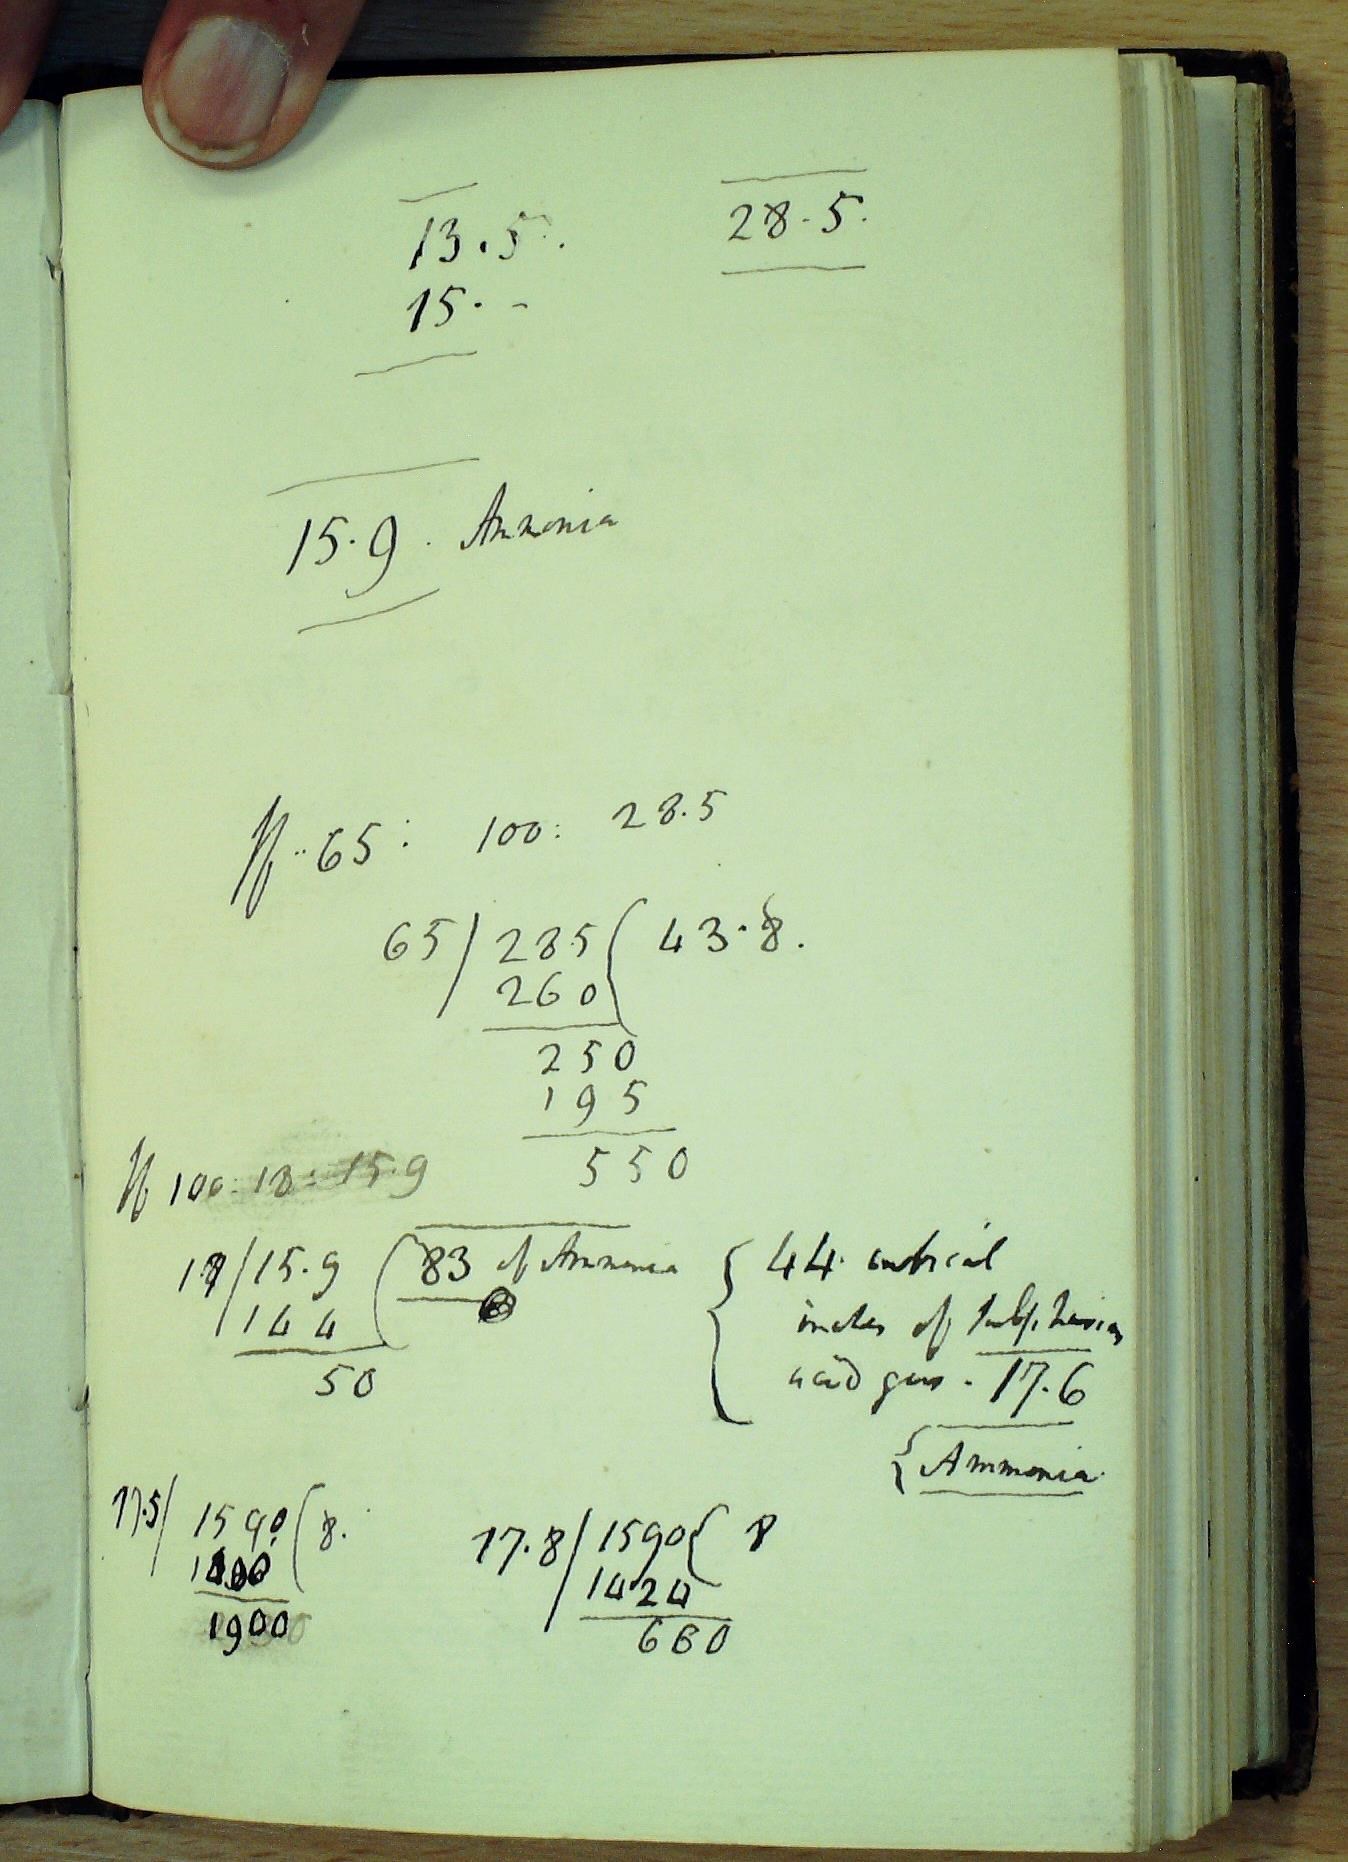 13.5. 28.5.
15. -
15.9. Ammonia
If .. 65 : 100 : 28.5
65 / 285 ( 43.8.
260
250
195
550
If 100 : 18 : 15.9
18 / 15.9 ( 83 of Ammonia
144
50
{ 44 cubical
inches of Sulphureous
acid gas. 17.6
{ Ammonia
17.5 / 1590 ( 8.
1400
1900
17.8 / 1590 { 8
1424
660